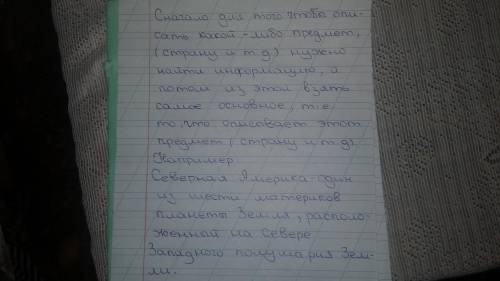 Сначало для того чтобы опи-
сать какой-либо предмет,
(страну и т д) нужно
найти информацию, а
потом из этой взять
самое основное, т.е,
то, что описывает этот
предмет (страну и т.д).
Например
Северная Америка-один
из шести материков
планеты Земля, располо-
женный на Севере
Западного полушария Зем-
ли.